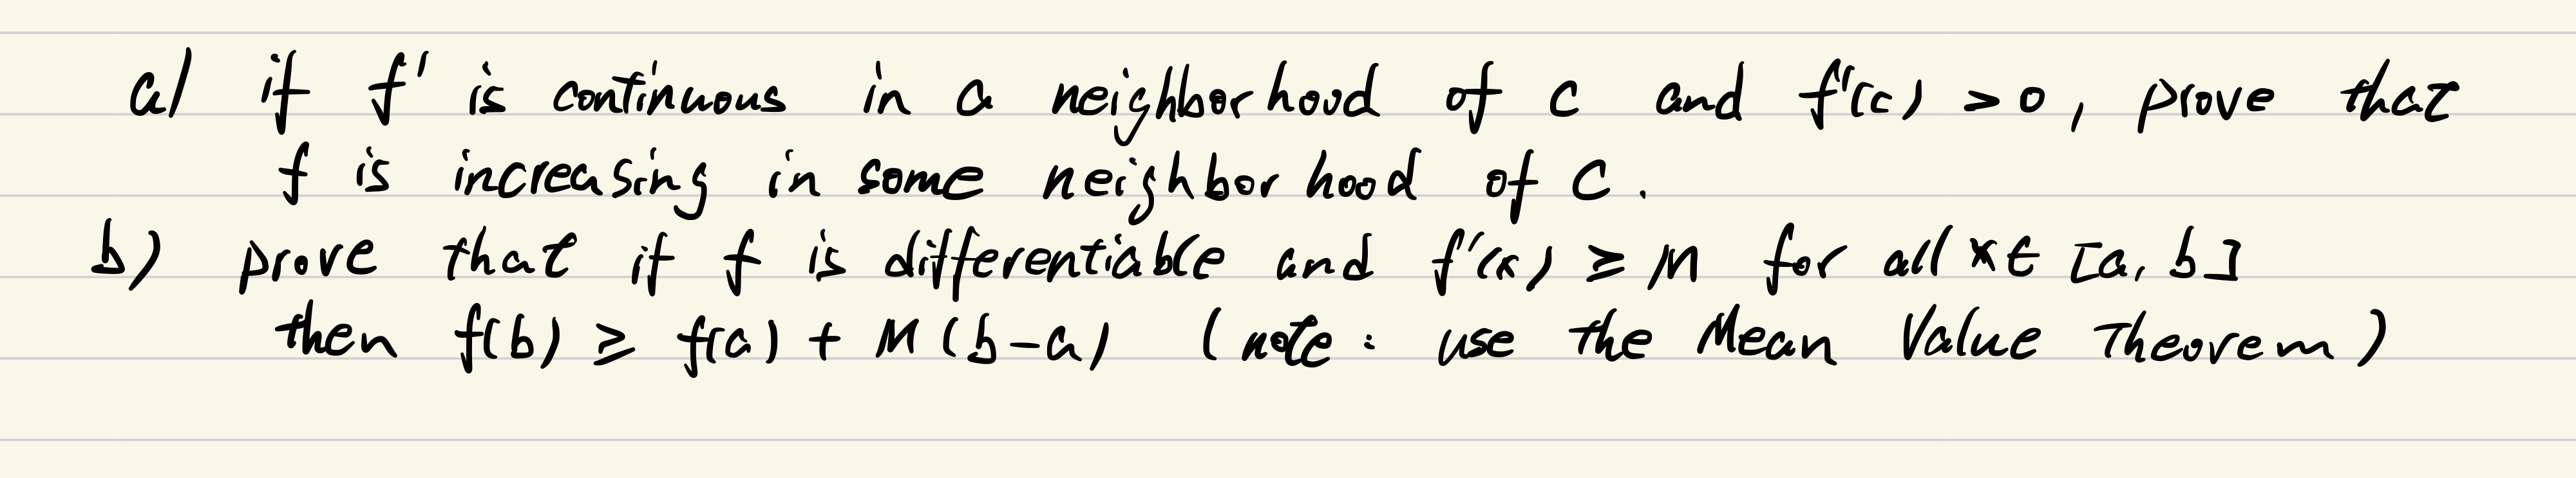 a) if f' is continuous in a neighborhood of c and f'(c) > 0, prove that
f is increasing in some neighborhood of c.
b) prove that if f is differentiable and f'(x) ≥ M for all x ∈ [a, b]
then f(b) ≥ f(a) + M(b-a) (note: use the Mean Value Theorem)